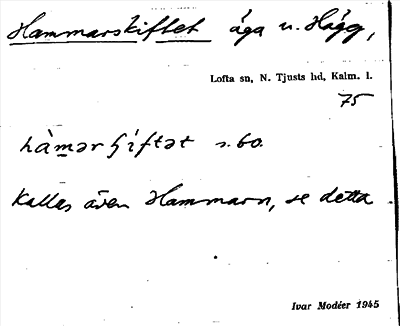 Hammarskiftet äga u. Hägg,
Lofta sn, N. Tjusts hd, Kalm. l.
75
hàmarʃíftət s. 60.
Kallas även Hammarn, se detta
Ivar Modéer 1945